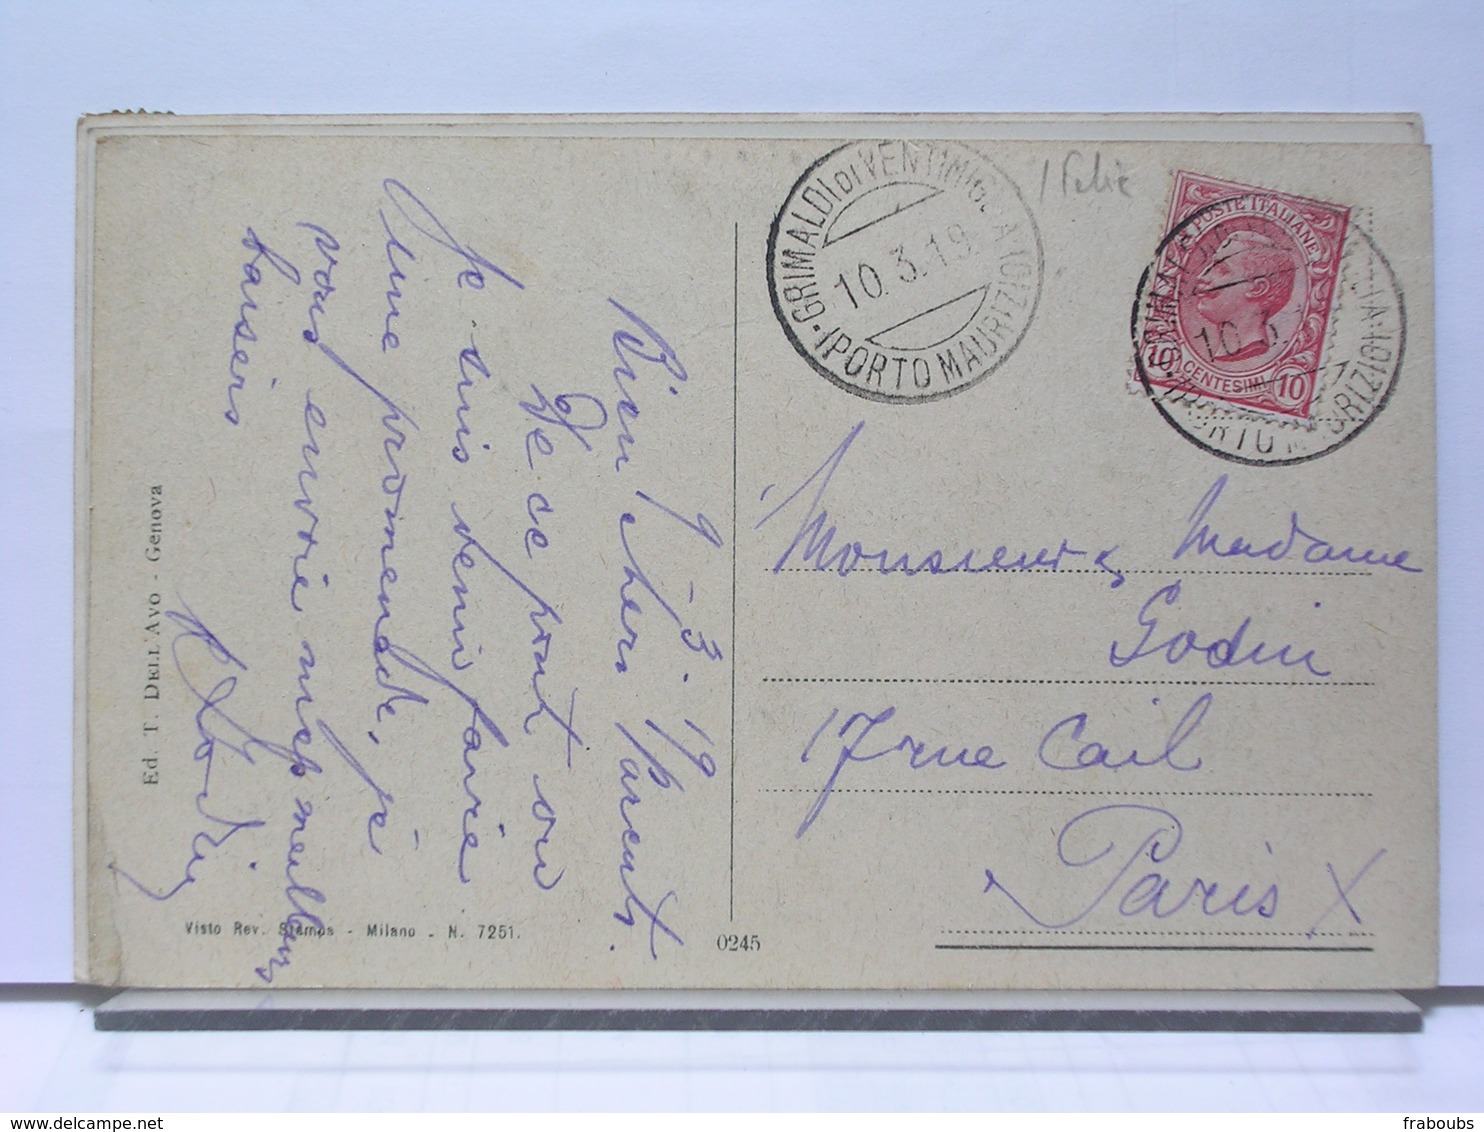 9-3-19
Bien chers Parents.
De ce pont où
je suis venu faire
une promenade, je
vous envoie mes meilleurs
baisers
Monsieur & Madame
Godin
17 rue Cail
Paris X
Italie
GRIMALDI DI VENTIMIGLIA
10.3.19
(PORTO MAURIZIO)
POSTE ITALIANE
10 CENTESIMI 10
Ed. T. DELL AVO - Genova
Visto Rev. Stampa - Milano - N. 7251.
0245
fraboubs